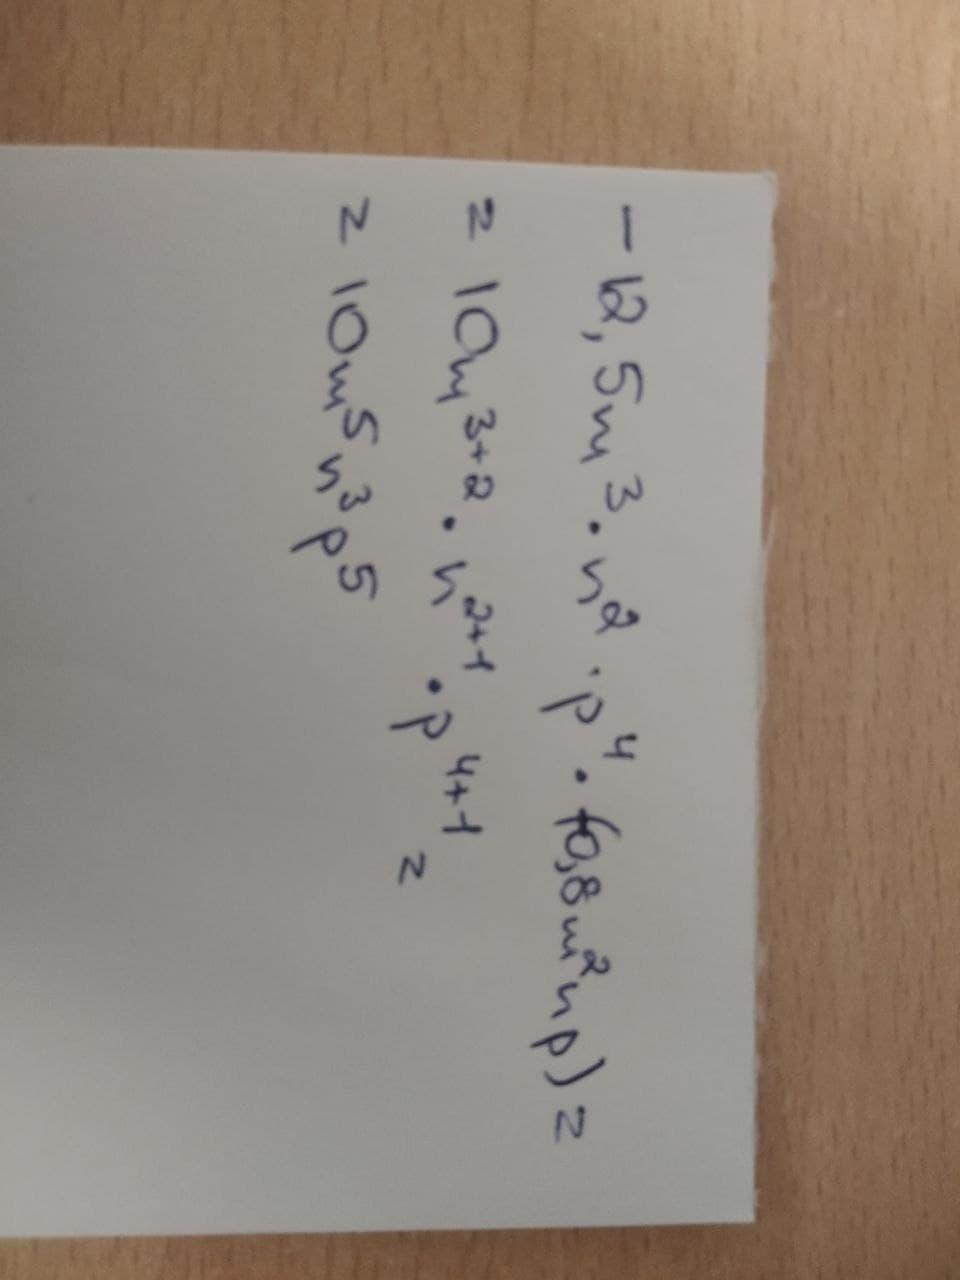 -12,5m³·n²·p⁴·(0,8m²np)=
=10m³⁺²·n²⁺¹·p⁴⁺¹=
=10m⁵n³p⁵